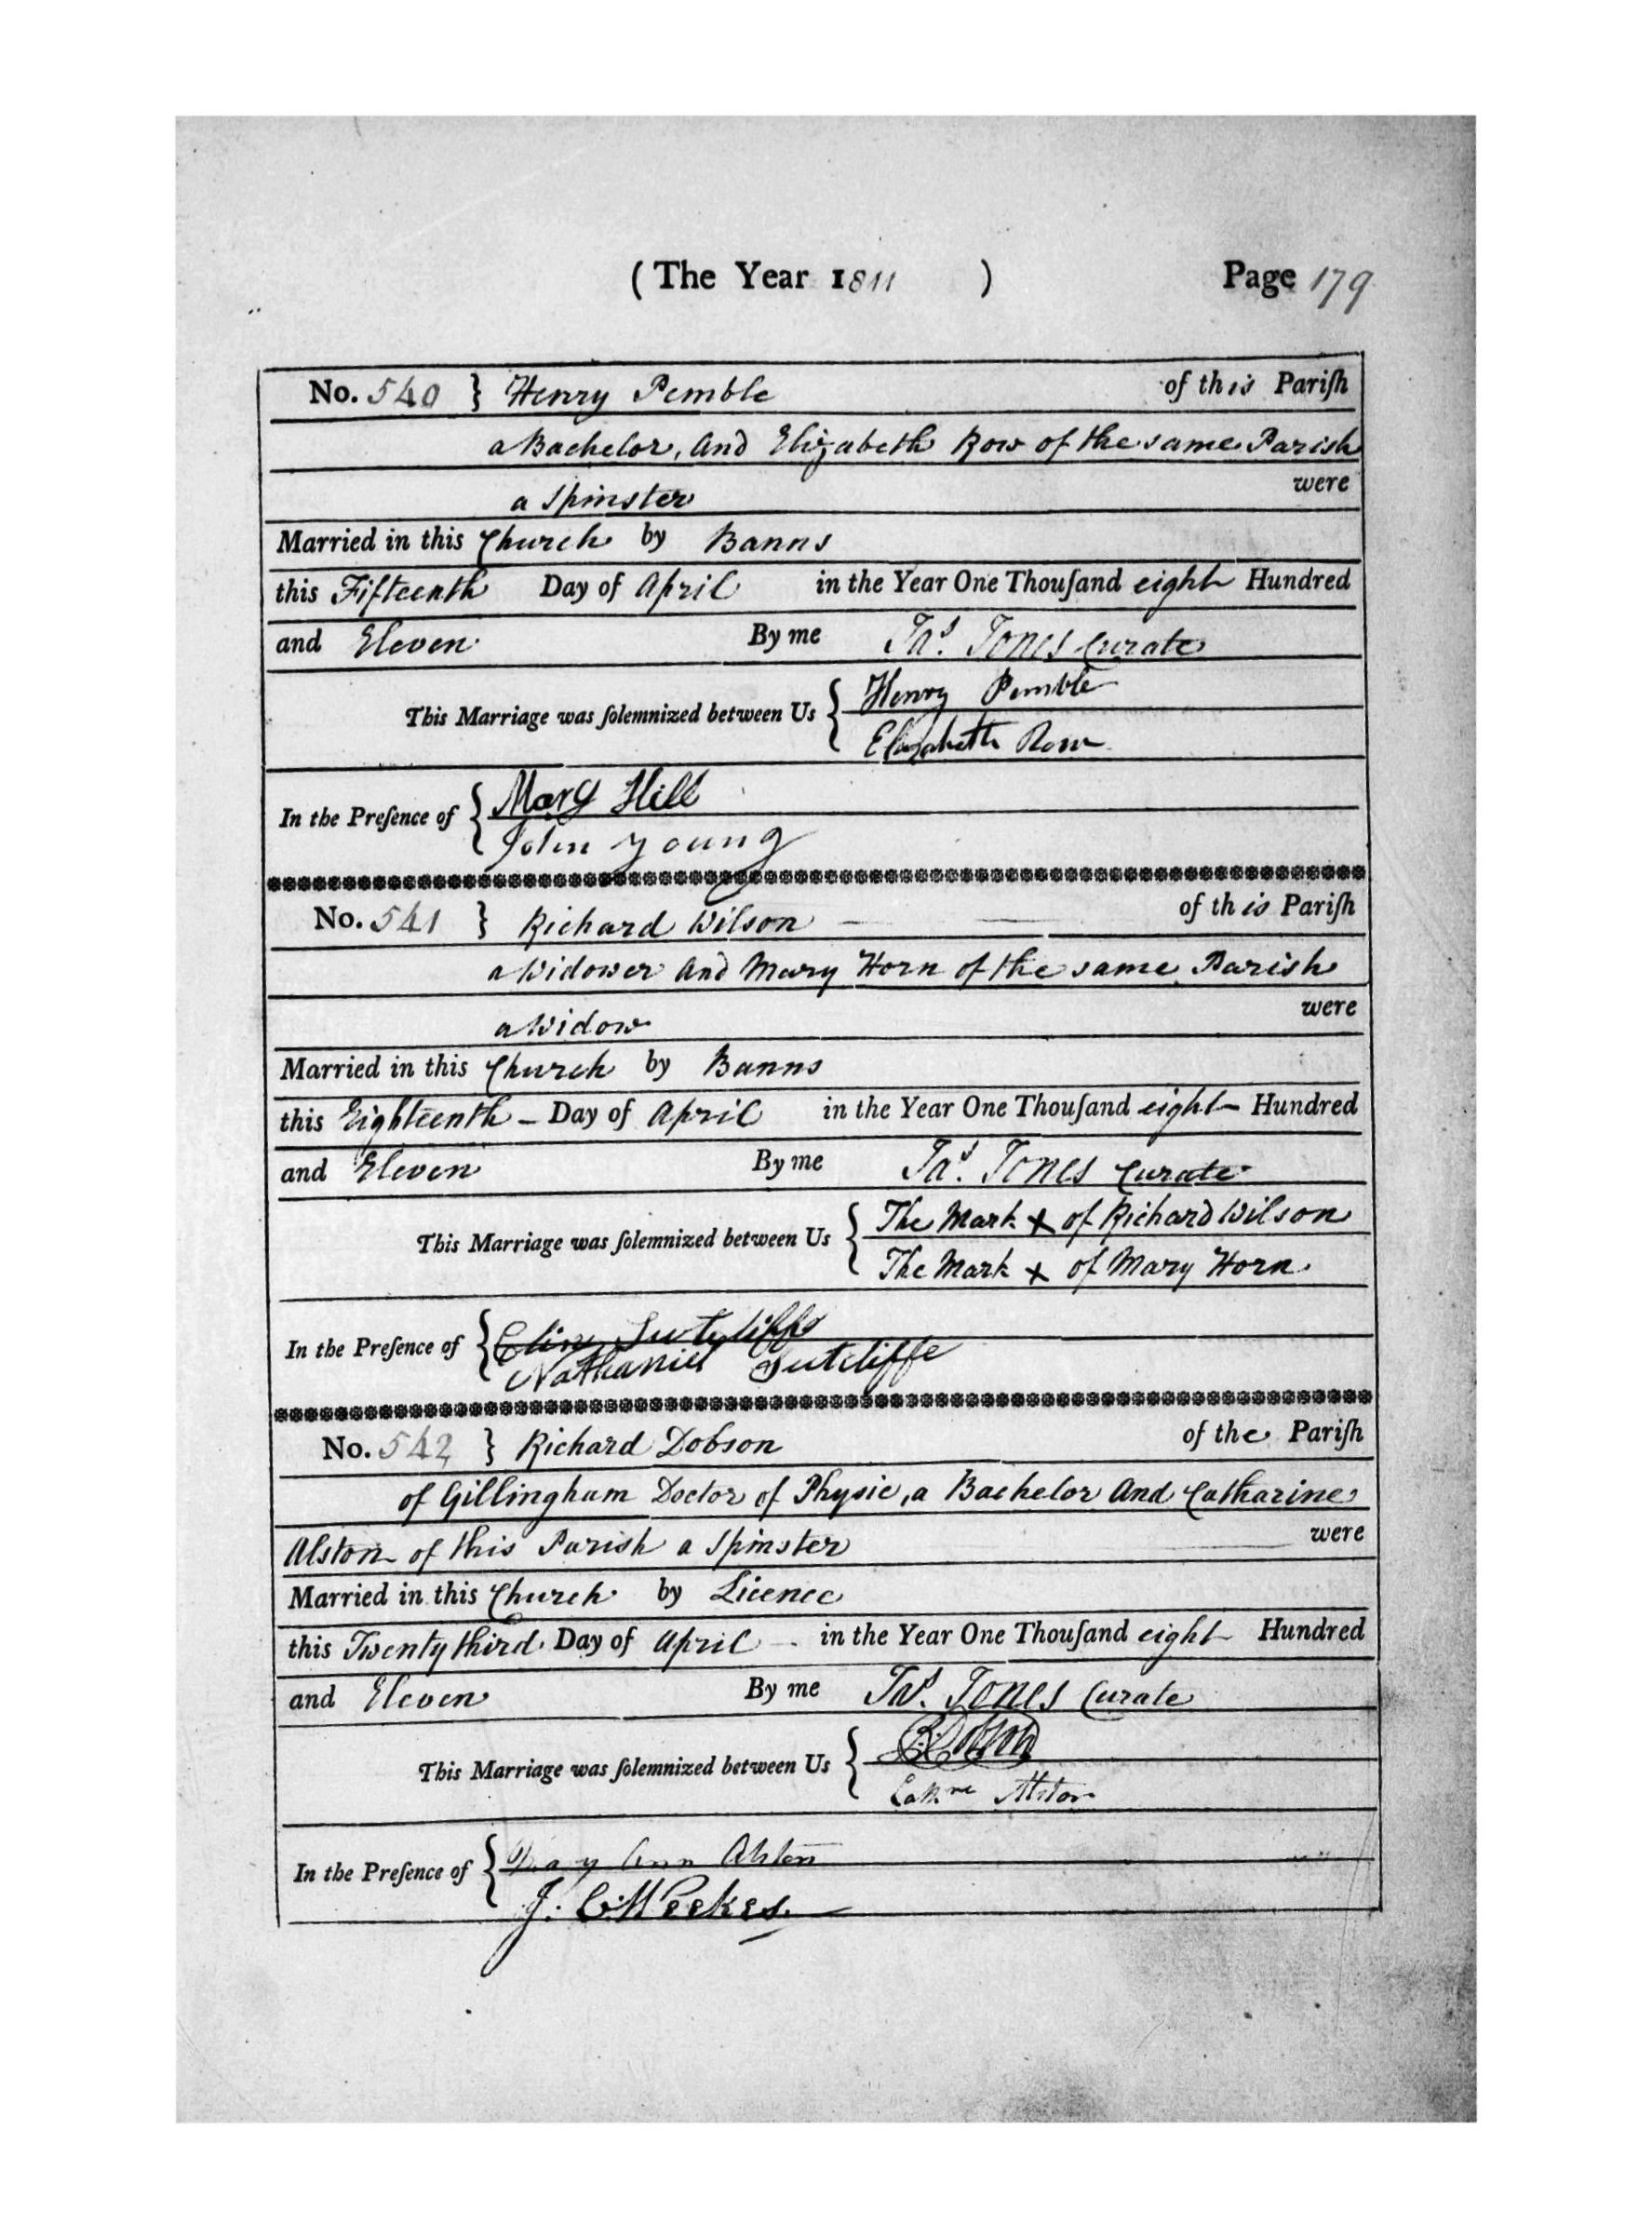 ( The Year 1811 ) Page 179
No. 540 } Henry Pemble of this Pariſh
a Bachelor, and Elizabeth Row of the same Parish
a Spinster were
Married in this Church by Banns
this Fifteenth Day of April in the Year One Thouſand eight Hundred
and Eleven By me Jas. Jones Curate
This Marriage was ſolemnized between Us { Henry Pemble
Elizabeth Row
In the Preſence of { Mary Hill
John Young
No. 541 } Richard Wilson of this Pariſh
a Widower and Mary Horn of the same Parish
a Widow were
Married in this Church by Banns
this Eighteenth – Day of April in the Year One Thouſand eight Hundred
and Eleven By me Jas. Jones Curate
This Marriage was ſolemnized between Us { The Mark X of Richard Wilson
The Mark X of Mary Horn.
In the Preſence of { Sutcliffe
Nathaniel Sutcliffe
No. 542 } Richard Dobson of the Pariſh
of Gillingham Doctor of Physic, a Bachelor and Catharine
Alston of this Parish a Spinster were
Married in this Church by Licence
this Twenty third Day of April in the Year One Thouſand eight Hundred
and Eleven By me Jas. Jones Curate
This Marriage was ſolemnized between Us { R. Dobson
Cathne Alston
In the Preſence of { Mary Ann Alston
J. C. Weekes.